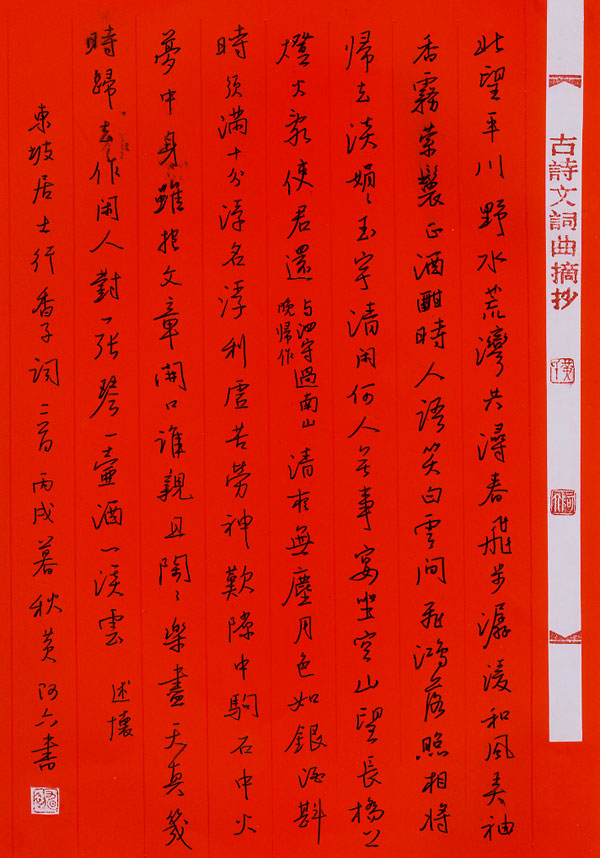 古詩文詞曲摘抄
北望平川野水荒灣共潯春飛步潺湲和風弄袖
香霧縈鬟正酒酣時人語笑白雲間飛鴻落照相將
歸去淡娟〻玉宇清閑何人無事宴坐空山望長橋上
燈火亂使君還 與泗守過南山晚歸作 清夜無塵月色如銀酒斟
時須滿十分浮名浮利虛苦勞神歎隙中駒石中火
夢中身雖抱文章開口誰親且陶〻樂盡天真幾
時歸去作閑人對一張琴一壺酒一溪雲 述懷
東坡居士行香子詞二首丙戌暮秋黃阿六書